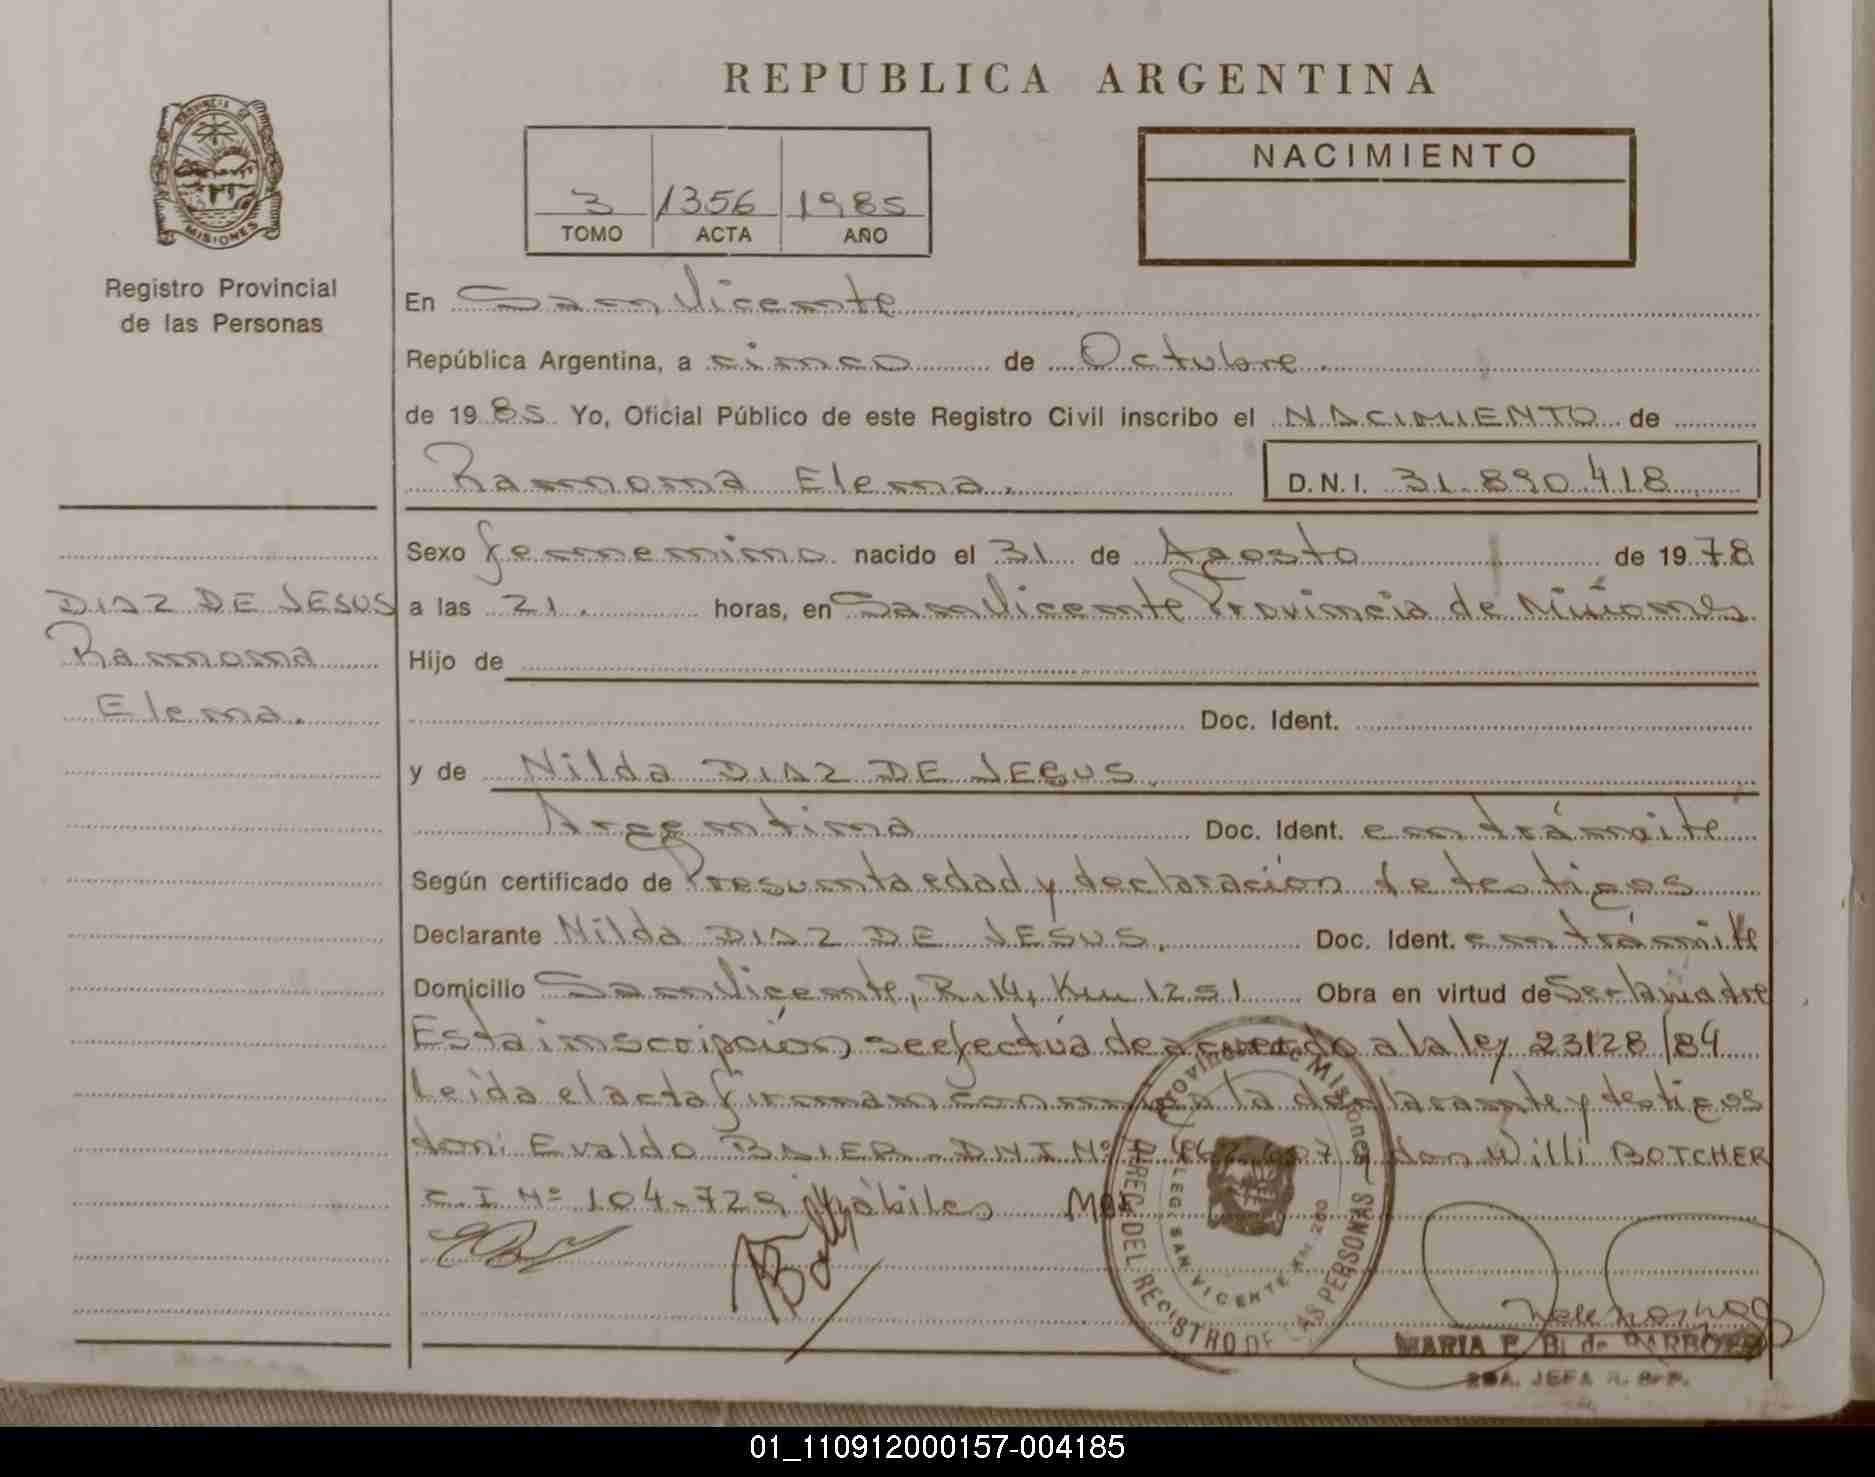 REPUBLICA ARGENTINA
PROVINCIA DE
MISIONES
Registro Provincial
de las Personas
3 1356 1985
TOMO ACTA AÑO
NACIMIENTO
En San Vicente
República Argentina, a cinco de Octubre
de 19 85 Yo, Oficial Público de este Registro Civil inscribo el NACIMIENTO de
Ramona Elena. D.N.I. 31.890.418
Sexo femenino nacido el 31 de Agosto de 19 78
DIAZ DE JESUS
Ramona
Elena.
a las 21. horas, en San Vicente Provincia de Misiones
Hijo de
Doc. Ident.
y de Nilda DIAZ DE JESUS
Argentina Doc. Ident. en trámite
Según certificado de Presunta edad y declaración de testigos
Declarante Nilda DIAZ DE JESUS. Doc. Ident. en trámite
Domicilio San Vicente, R.14, Km 1251 Obra en virtud de Ser la madre
Esta inscripción se efectúa de acuerdo a la ley 23128/84
Leida el acta firman conmigo la declarante y testigos
don: Evaldo BAIER DNI Nº y don Willi BOTCHER
C.I Nº 104.729 Hábiles
PROVINCIA DE MISIONES
DEL REGISTRO DE LAS PERSONAS
SAN VICENTE
MARIA E. B. de BARBOZA
2DA. JEFA R. P.
01_110912000157-004185